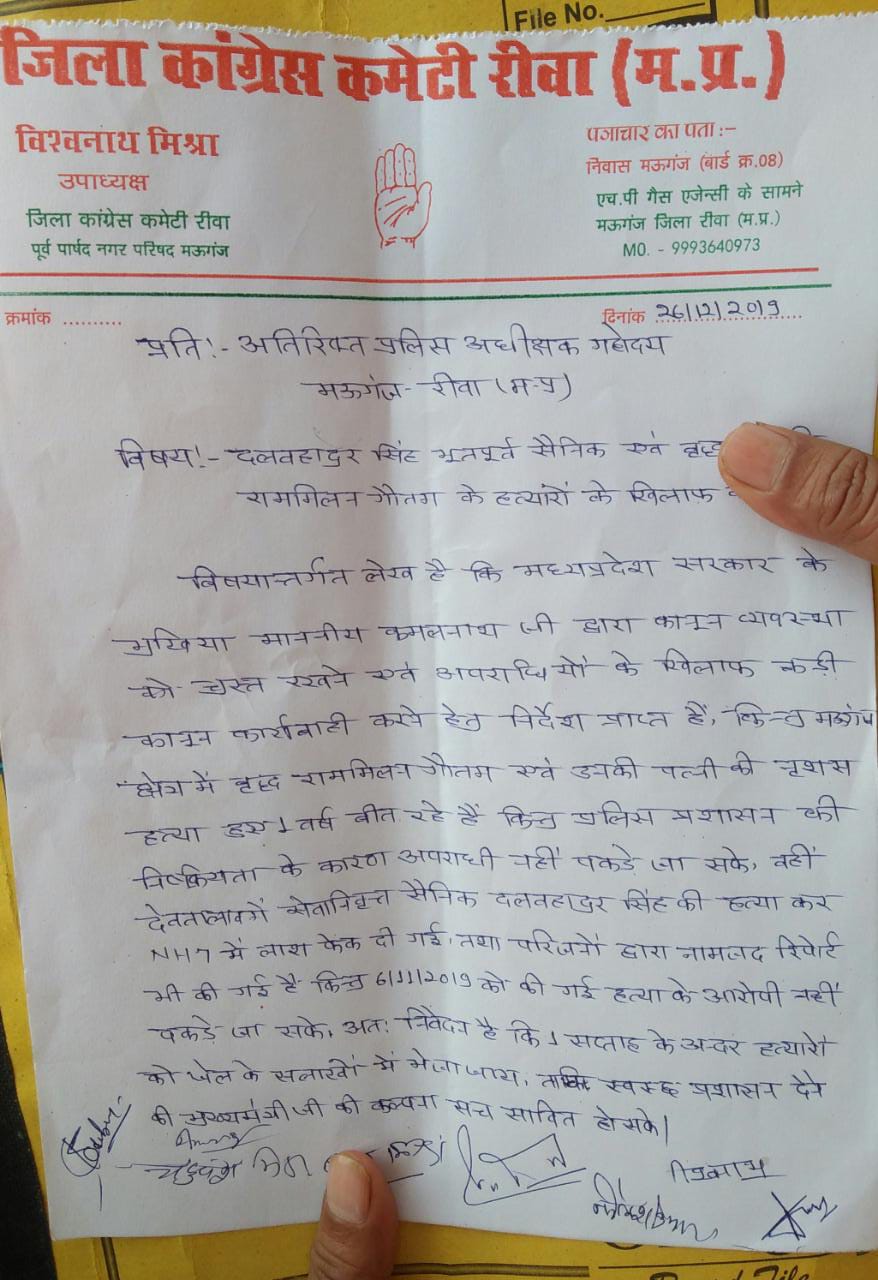 File No.
जिला कांग्रेस कमेटी रीवा (म.प्र.)
विश्वनाथ मिश्रा
उपाध्यक्ष
जिला कांग्रेस कमेटी रीवा
पूर्व पार्षद नगर परिषद मऊगंज
पत्राचार का पता :-
निवास मऊगंज (बार्ड क्र.08)
एच.पी गैस एजेन्सी के सामने
मऊगंज जिला रीवा (म.प्र.)
MO. - 9993640973
क्रमांक ..........
दिनांक 26/12/2019
प्रति :- अतिरिक्त पुलिस अधीक्षक महोदय
मऊगंज - रीवा (म-प्र)
विषय :- दलवहादुर सिंह भूतपूर्व सैनिक एवं वृद्ध
राममिलन गौतम के हत्यारों के खिलाफ
विषयान्तर्गत लेख है कि मध्यप्रदेश सरकार के
मुखिया माननीय कमलनाथ जी द्वारा कानून व्यवस्था
को चुस्त रखने एवं अपराधियों के खिलाफ कड़ी
कानून कार्यवाही करने हेतु निर्देश प्राप्त हैं, किन्तु मऊगंज
क्षेत्र में वृद्ध राममिलन गौतम एवं उनकी पत्नी की नृशस
हत्या हुए 1 वर्ष बीत रहे हैं किन्तु पुलिस प्रशासन की
निष्क्रियता के कारण अपराधी नहीं पकड़े जा सके, वहीं
देवतालाब में सेवानिवृत्त सैनिक दलवहादुर सिंह की हत्या कर
NH7 में लाश फेक दी गई, तथा परिजनों द्वारा नामजद रिपोर्ट
भी की गई है किन्तु 6/11/2019 को की गई हत्या के आरोपी नहीं
पकड़े जा सके, अतः निवेदन है कि 1 सप्ताह के अन्दर हत्यारों
को जेल के सलाखों में भेजा जाय, ताकि स्वच्छ प्रशासन देने
की मुख्यमंत्री जी की कल्पना सच साबित हो सके।